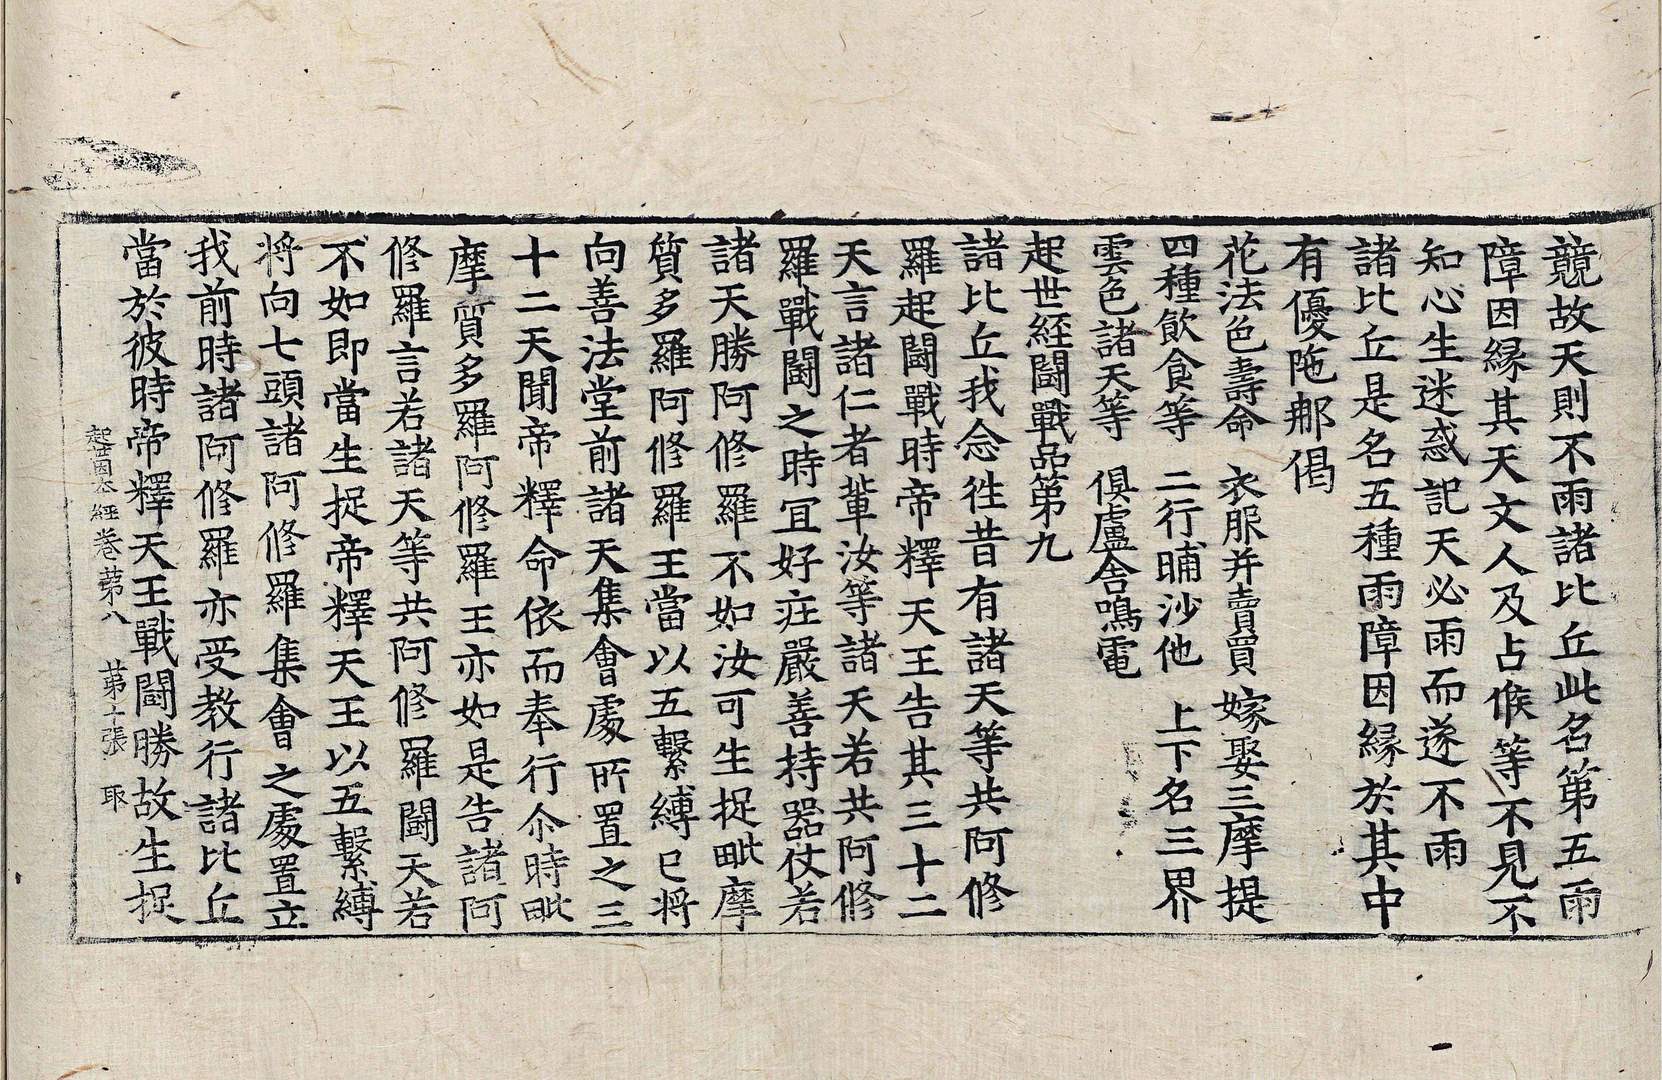 競故天則不雨諸比丘此名第五雨
障因緣其天文人及占候等不見不
知心生迷惑記天必雨而遂不雨
諸比丘是名五種雨障因緣於其中
有優陁郍偈
花法色壽命　衣服并賣買　嫁娶三摩提
四種飮食等　二行晡沙他　上下名三界
雲色諸天等　俱盧舍鳴電
起世經鬪戰品第九
諸比丘我念往昔有諸天等共阿修
羅起鬪戰時帝釋天王告其三十二
天言諸仁者輩汝等諸天若共阿修
羅戰鬪之時宜好莊嚴善持器仗若
諸天勝阿修羅不如汝可生捉毗摩
質多羅阿修羅王當以五繫縛已將
向善法堂前諸天集會處所置之三
十二天聞帝釋命依而奉行尒時毗
摩質多羅阿修羅王亦如是告諸阿
修羅言若諸天等共阿修羅鬪天若
不如即當生捉帝釋天王以五繫縛
將向七頭諸阿修羅集會之處置立
我前時諸阿修羅亦受教行諸比丘
當於彼時帝釋天王戰鬪勝故生捉
起世因本經卷第八　第十張　耶